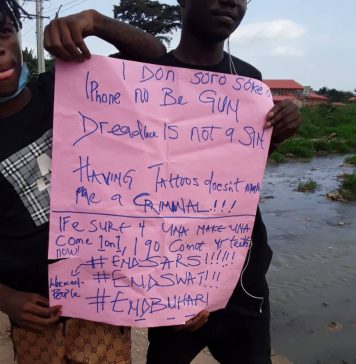 I DON SORO SOKE
IPHONE NO BE GUN
DREADLOCK IS NOT A SIN
HAVING TATTOOS doesn't make
me a CRIMINAL!!!
IF E SURE 4 UNA MAKE UNA
COME 1on1, I go Comot 4 teeth
NOW!
#ENDSARS!!!!!!
Wicked
People
#ENDSWAT!!!
#ENDBUHARI